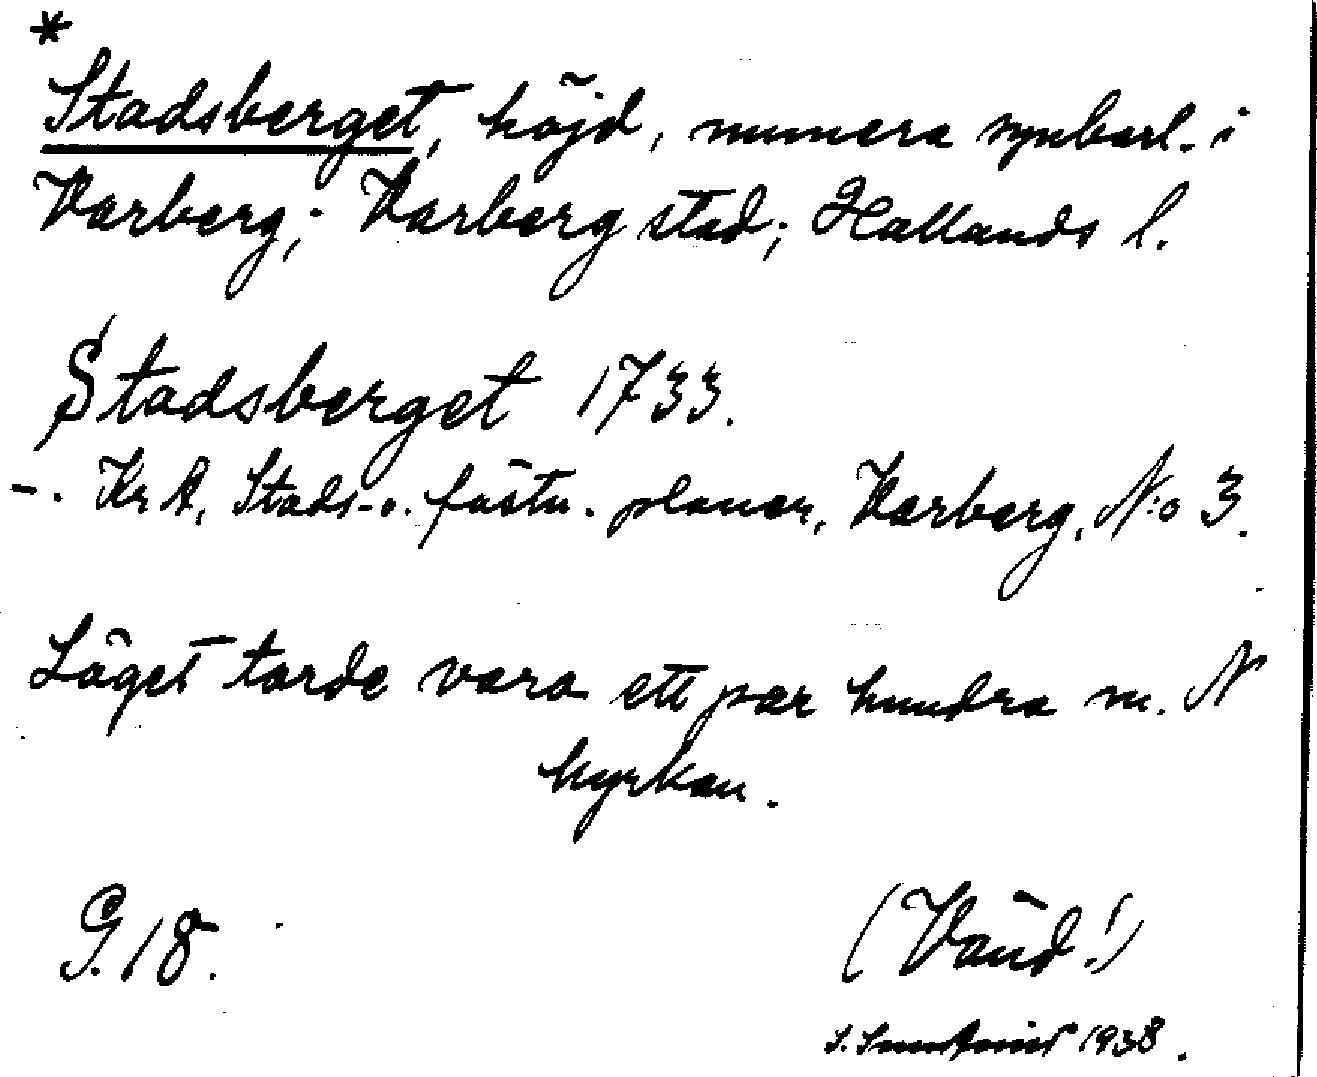 *
Stadsberget, höjd, numera synbarl. i
Varberg; Varberg stad; Hallands l.
Stadsberget 1733.
-. Kr A, Stads- o. fästn. planer, Varberg, N:o 3.
Läget torde vara ett par hundra m. N
kyrkan.
G. 18.
(Vänd!)
1938.